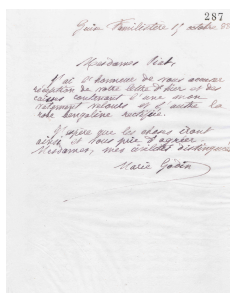 287
Guise Familistère 15 octobre 88
Mesdames Piat,
J'ai l'honneur de vous accuser
réception de votre lettre d'hier et des
caisses contenant l'une mon
vêtement velours et l'autre la
robe bengaline rectifiée.
J'espère que les choses iront
ainsi et vous prie d'agréer
Mesdames, mes civilités distinguées
Marie Godin